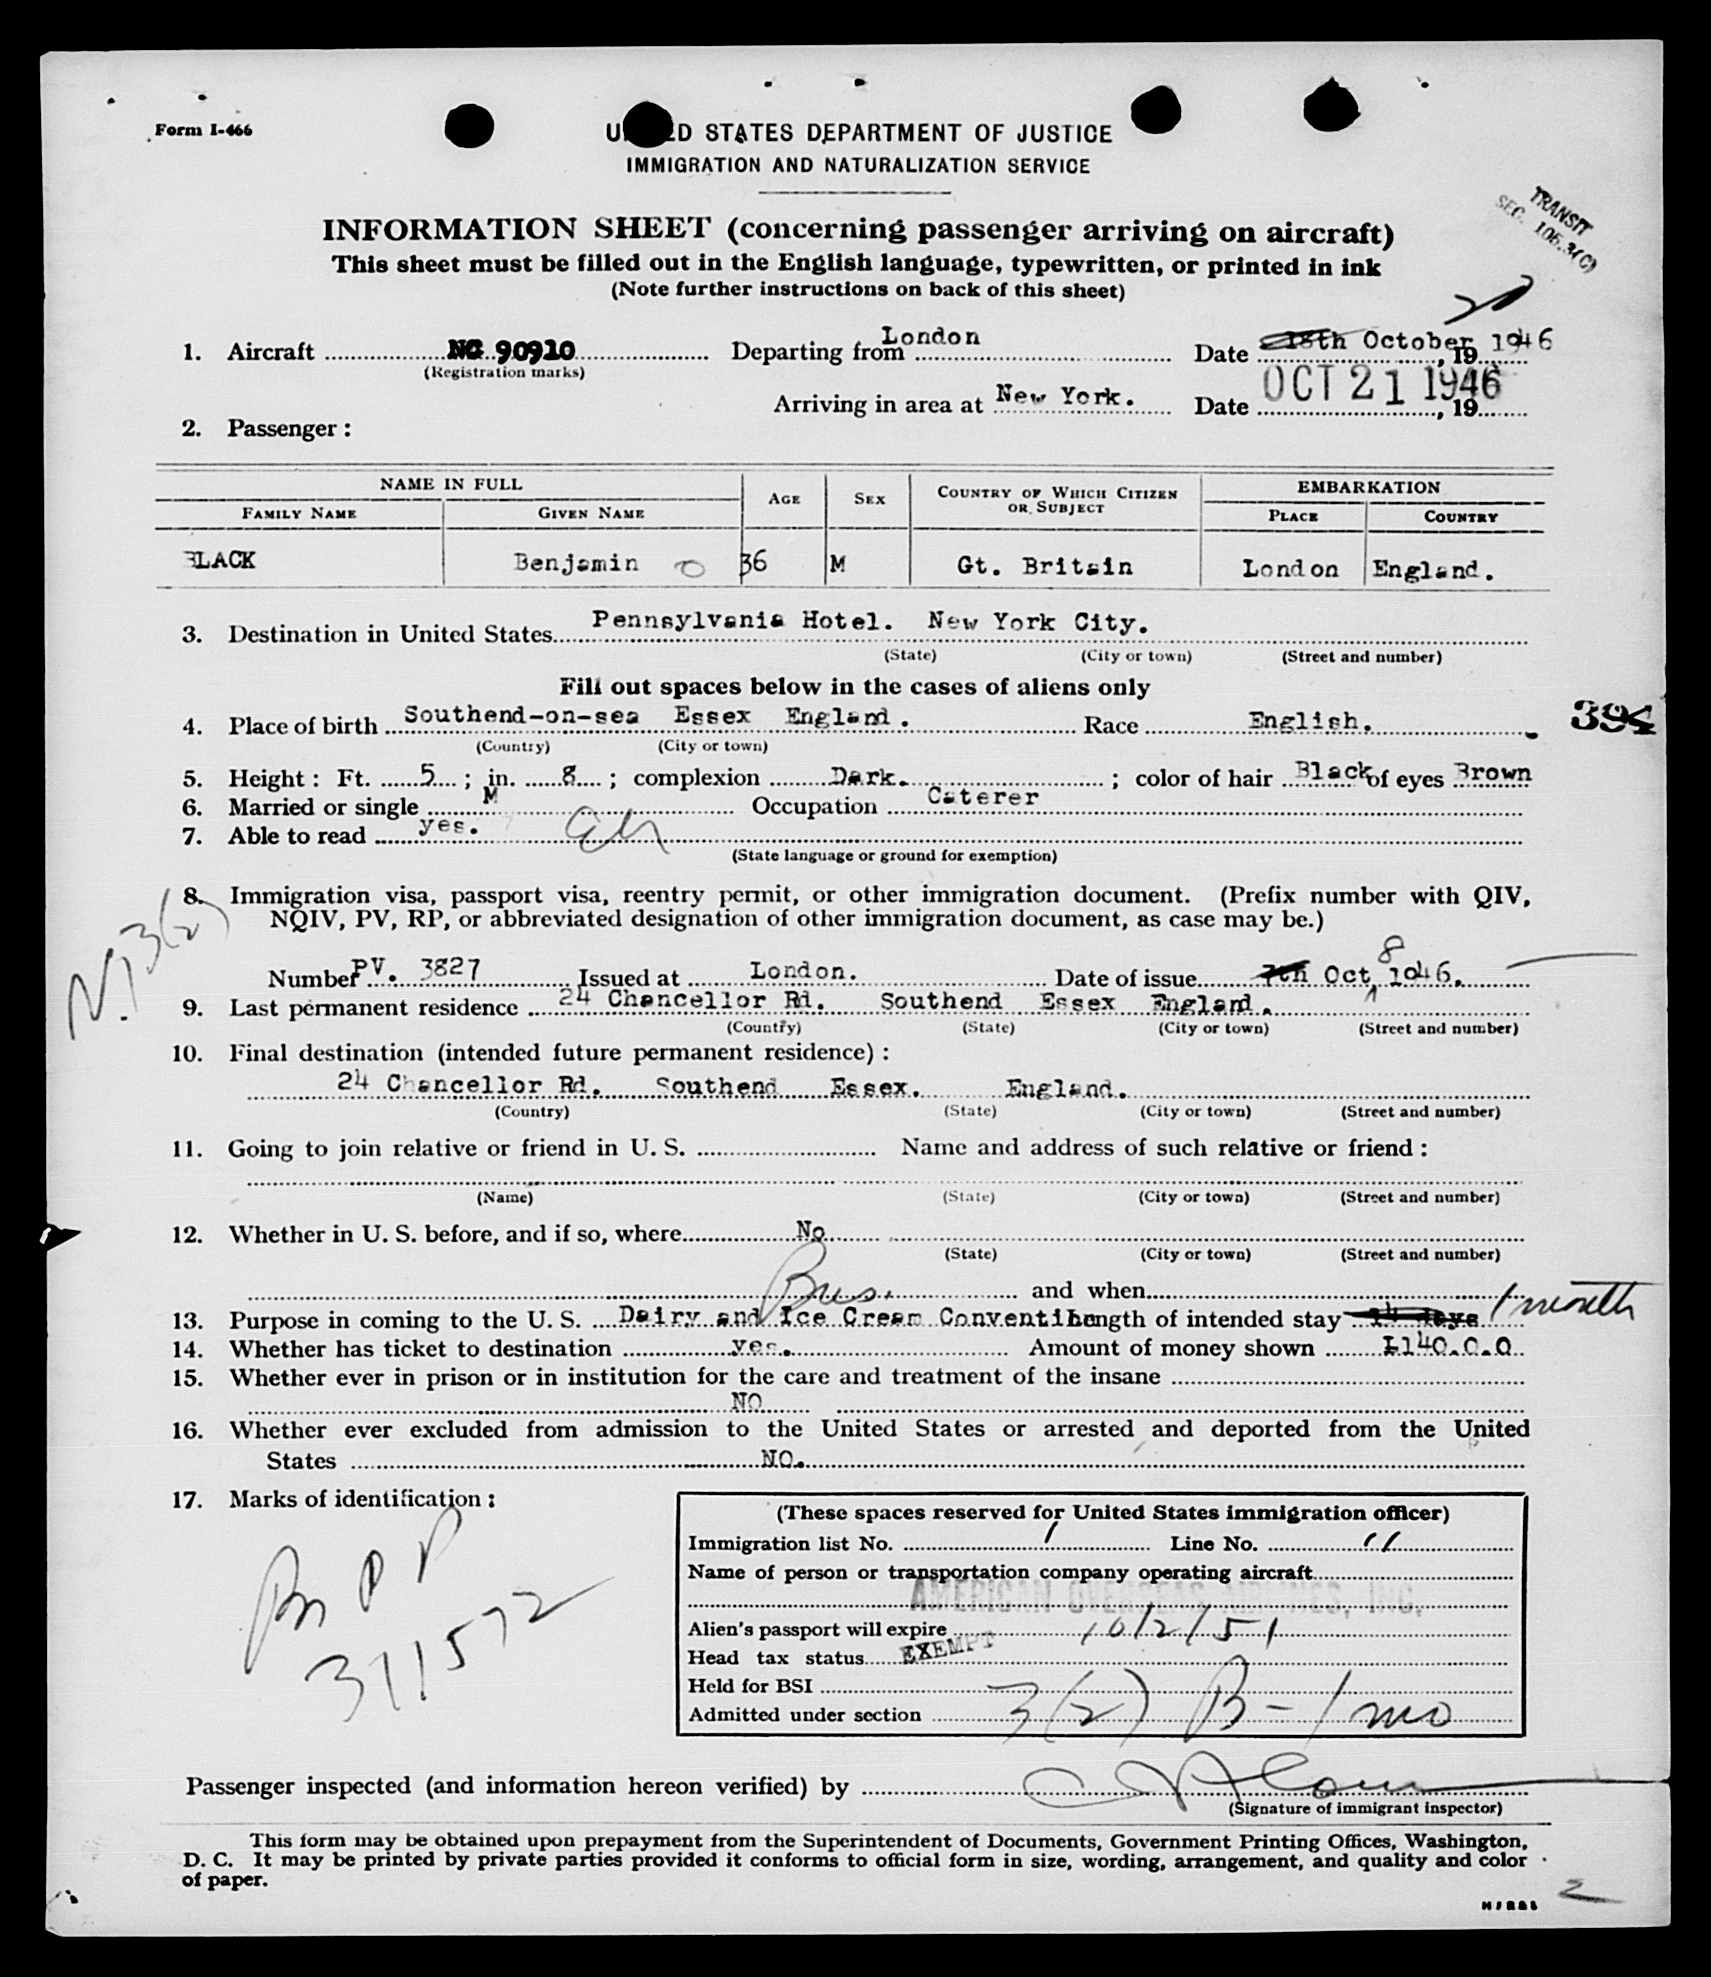 Form I-466
UNITED STATES DEPARTMENT OF JUSTICE
IMMIGRATION AND NATURALIZATION SERVICE
TRANSIT
SEC. 106.3(C)
INFORMATION SHEET (concerning passenger arriving on aircraft)
This sheet must be filled out in the English language, typewritten, or printed in ink
(Note further instructions on back of this sheet)
20
1. Aircraft NC 90910 Departing from London Date 18th October, 19 1946
(Registration marks)
Arriving in area at New York. Date OCT 21 1946, 19
2. Passenger:
NAME IN FULL AGE SEX COUNTRY OF WHICH CITIZEN OR SUBJECT EMBARKATION
FAMILY NAME GIVEN NAME PLACE COUNTRY
BLACK Benjamin 36 M Gt. Britain London England.
3. Destination in United States Pennsylvania Hotel. New York City.
(State) (City or town) (Street and number)
Fill out spaces below in the cases of aliens only
4. Place of birth Southend-on-sea Essex England. Race English. 394
(Country) (City or town)
5. Height: Ft. 5; in. 8; complexion Dark.; color of hair Black of eyes Brown
6. Married or single M Occupation Caterer
7. Able to read yes.
(State language or ground for exemption)
8. Immigration visa, passport visa, reentry permit, or other immigration document. (Prefix number with QIV,
NQIV, PV, RP, or abbreviated designation of other immigration document, as case may be.)
N.I 3(2)
8
Number PV. 3827 Issued at London. Date of issue 7th Oct, 1946.
9. Last permanent residence 24 Chancellor Rd. Southend Essex England.
(Country) (State) (City or town) (Street and number)
10. Final destination (intended future permanent residence):
24 Chancellor Rd. Southend Essex. England.
(Country) (State) (City or town) (Street and number)
11. Going to join relative or friend in U. S. Name and address of such relative or friend:
(Name) (State) (City or town) (Street and number)
12. Whether in U. S. before, and if so, where No
(State) (City or town) (Street and number)
Bus. and when
13. Purpose in coming to the U. S. Dairy and Ice Cream Convention Length of intended stay 14 days 1 month
14. Whether has ticket to destination yes. Amount of money shown £140.0.0
15. Whether ever in prison or in institution for the care and treatment of the insane
NO
16. Whether ever excluded from admission to the United States or arrested and deported from the United
States NO.
17. Marks of identification:
PP
311572
(These spaces reserved for United States immigration officer)
Immigration list No. 1 Line No. 11
Name of person or transportation company operating aircraft
AMERICAN OVERSEAS AIRLINES, INC.
Alien's passport will expire 10/2/51
Head tax status EXEMPT
Held for BSI
Admitted under section 3(2) B-1 mo
Passenger inspected (and information hereon verified) by
(Signature of immigrant inspector)
This form may be obtained upon prepayment from the Superintendent of Documents, Government Printing Offices, Washington,
D. C. It may be printed by private parties provided it conforms to official form in size, wording, arrangement, and quality and color
of paper.
2